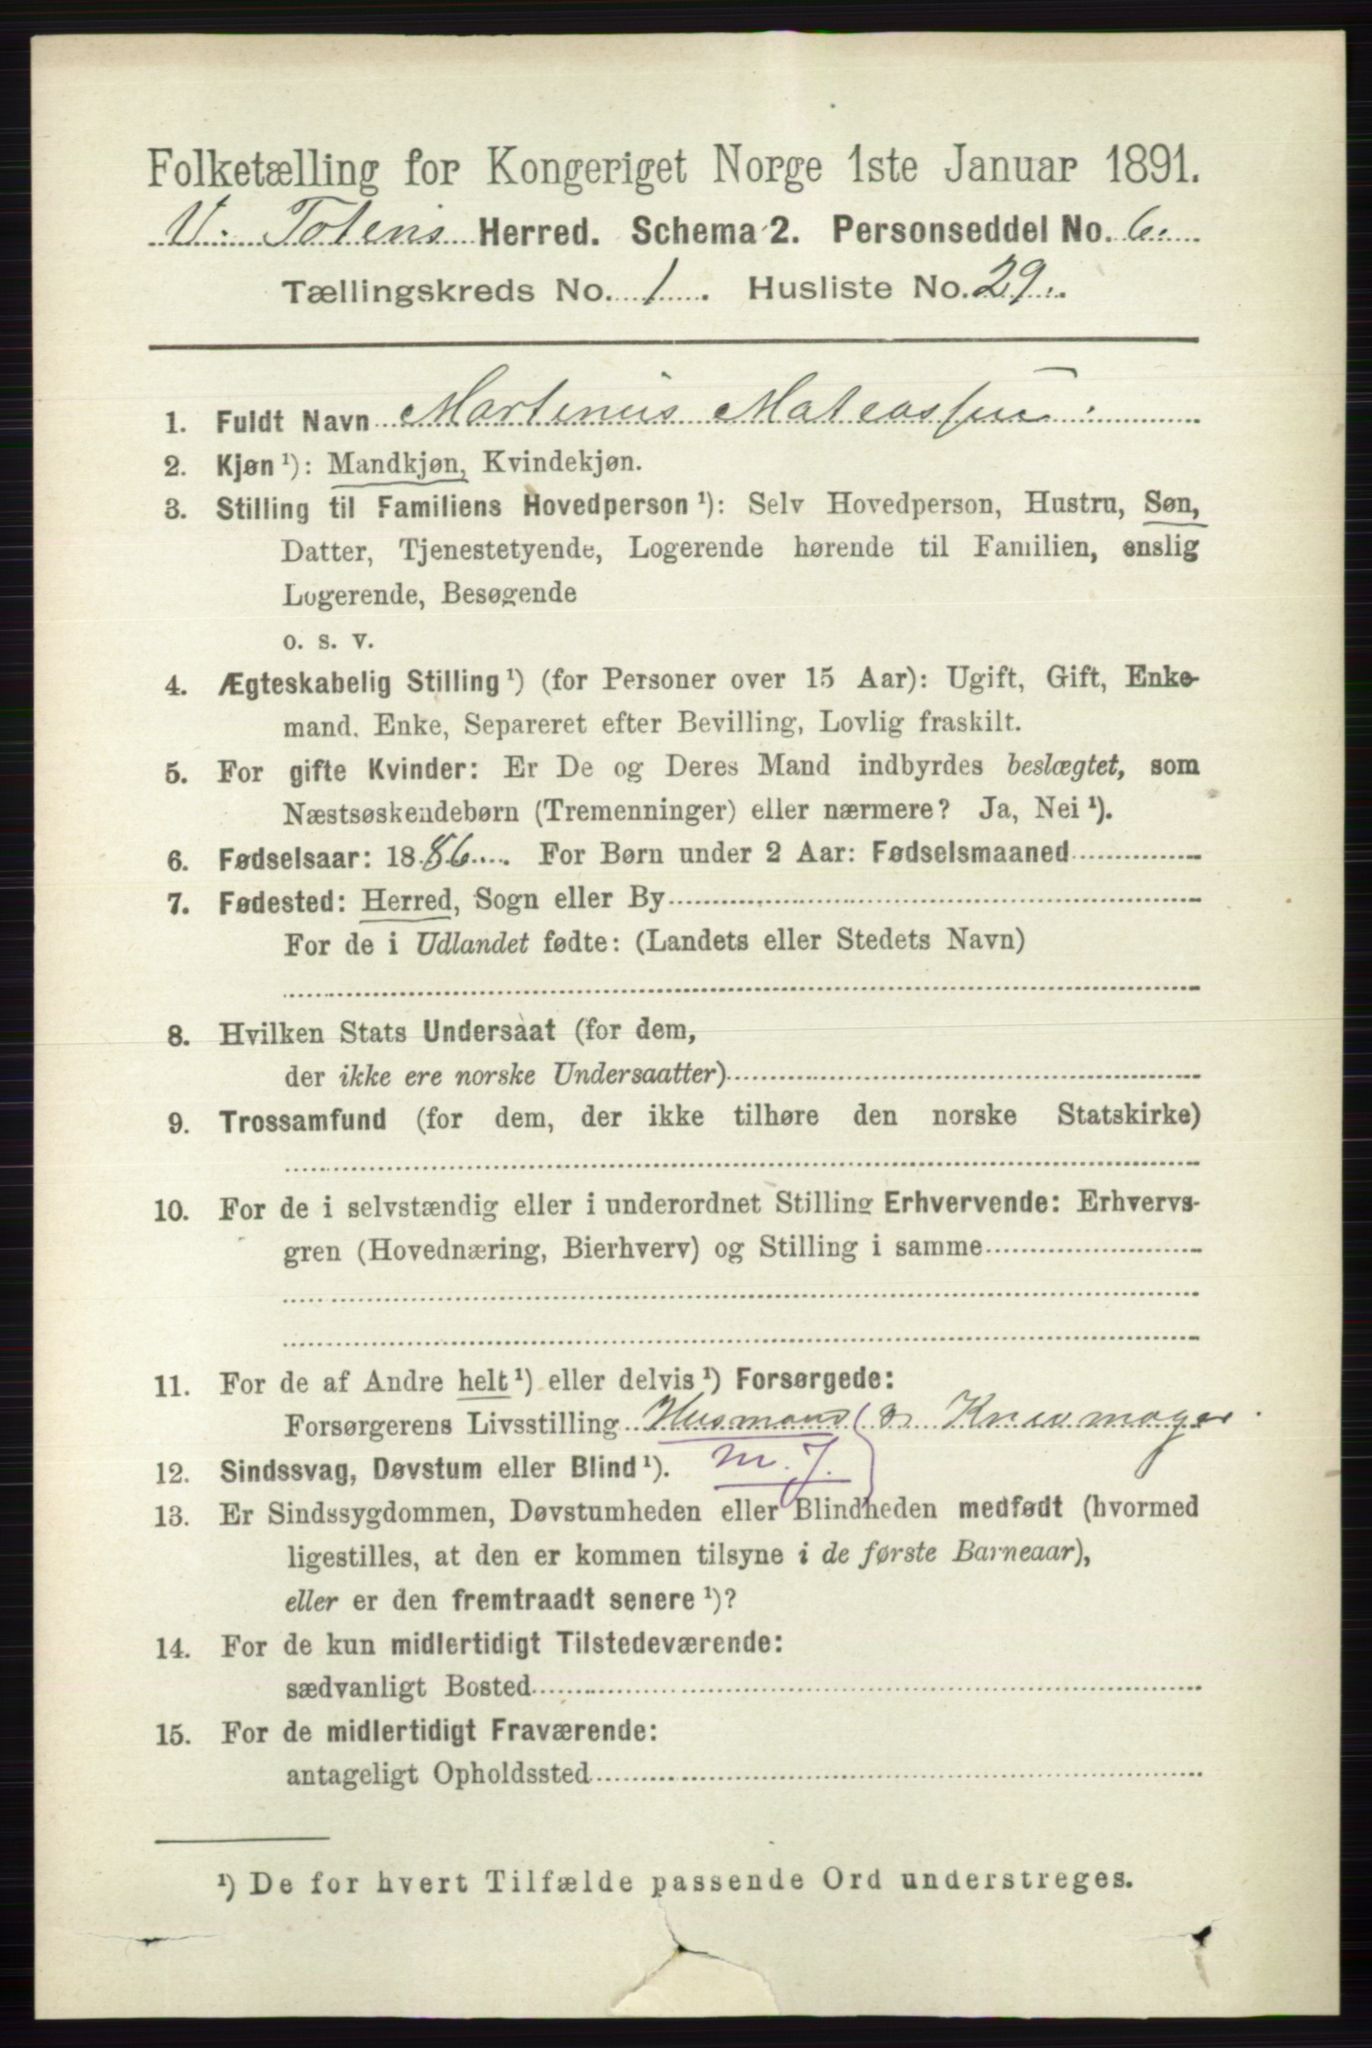 Folketælling for Kongeriget Norge 1ste Januar 1891.
V. Totens Herred. Schema 2. Personseddel No. 6.
Tællingskreds No. 1. Husliste No. 29.
1. Fuldt Navn Martinius Mateassen
2. Kjøn ¹): Mandkjøn, Kvindekjøn.
3. Stilling til Familiens Hovedperson ¹): Selv Hovedperson, Hustru, Søn,
Datter, Tjenestetyende, Logerende hørende til Familien, enslig
Logerende, Besøgende
o. s. v.
4. Ægteskabelig Stilling ¹) (for Personer over 15 Aar): Ugift, Gift, Enke-
mand, Enke, Separeret efter Bevilling, Lovlig fraskilt.
5. For gifte Kvinder: Er De og Deres Mand indbyrdes beslægtet, som
Næstsøskendebørn (Tremenninger) eller nærmere? Ja, Nei ¹).
6. Fødselsaar: 1886. For Børn under 2 Aar: Fødselsmaaned
7. Fødested: Herred, Sogn eller By
For de i Udlandet fødte: (Landets eller Stedets Navn)
8. Hvilken Stats Undersaat (for dem,
der ikke ere norske Undersaatter)
9. Trossamfund (for dem, der ikke tilhøre den norske Statskirke)
10. For de i selvstændig eller i underordnet Stilling Erhvervende: Erhvervs-
gren (Hovednæring, Bierhverv) og Stilling i samme
11. For de af Andre helt ¹) eller delvis ¹) Forsørgede:
Forsørgerens Livsstilling Husmand
m. J.
12. Sindssvag, Døvstum eller Blind ¹).
13. Er Sindssygdommen, Døvstumheden eller Blindheden medfødt (hvormed
ligestilles, at den er kommen tilsyne i de første Barneaar),
eller er den fremtraadt senere ¹)?
14. For de kun midlertidigt Tilstedeværende:
sædvanligt Bosted
15. For de midlertidigt Fraværende:
antageligt Opholdssted
¹) De for hvert Tilfælde passende Ord understreges.